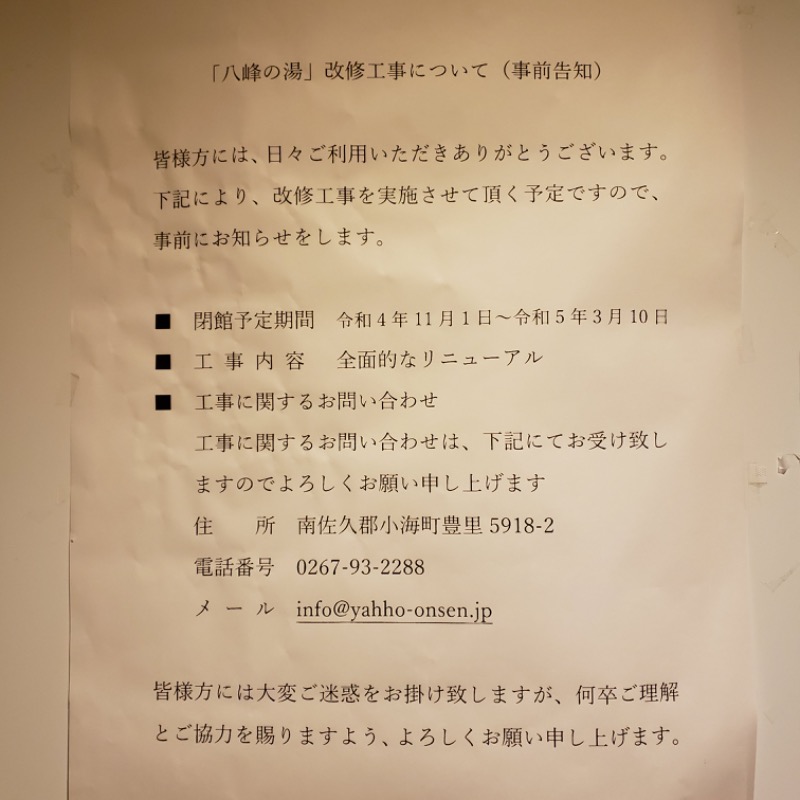 「八峰の湯」改修工事について（事前告知）
皆様方には、日々ご利用いただきありがとうございます。
下記により、改修工事を実施させて頂く予定ですので、
事前にお知らせをします。
■ 閉館予定期間 令和4年11月1日～令和5年3月10日
■ 工事内容 全面的なリニューアル
■ 工事に関するお問い合わせ
工事に関するお問い合わせは、下記にてお受け致し
ますのでよろしくお願い申し上げます
住 所 南佐久郡小海町豊里 5918-2
電話番号 0267-93-2288
メール info@yahho-onsen.jp
皆様方には大変ご迷惑をお掛け致しますが、何卒ご理解
とご協力を賜りますよう、よろしくお願い申し上げます。